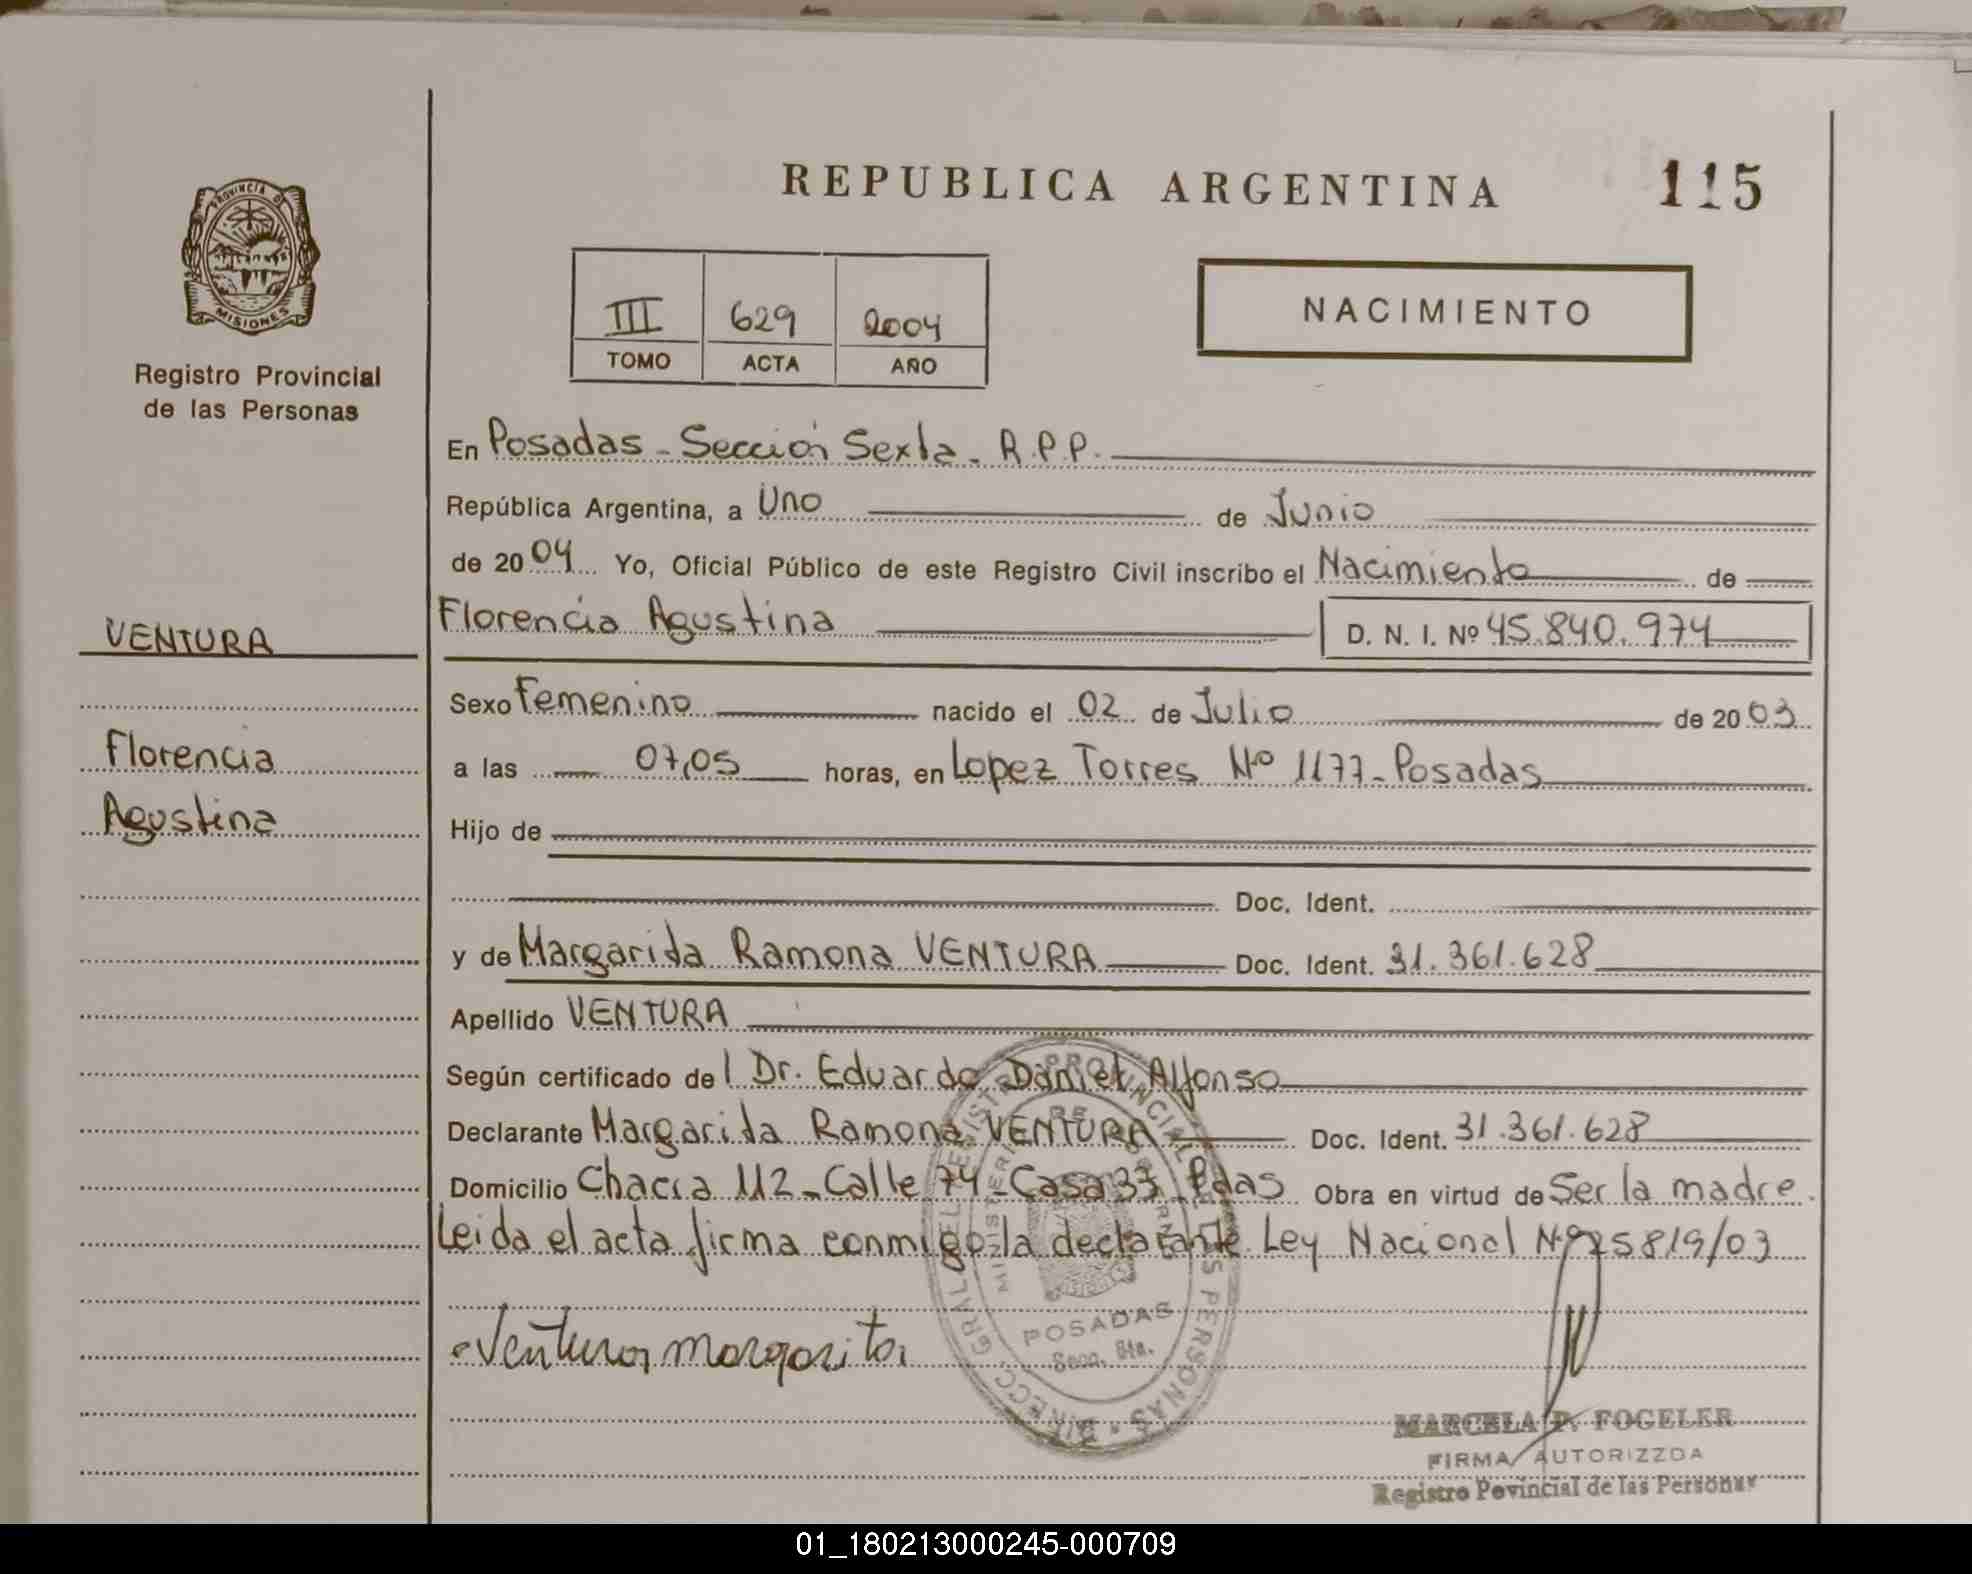 REPUBLICA ARGENTINA 115
PROVINCIA DE
MISIONES
Registro Provincial
de las Personas
III 629 2004
TOMO ACTA AÑO
NACIMIENTO
VENTURA
Florencia
Agustina
En Posadas - Sección Sexta - R.P.P.
República Argentina, a Uno de Junio
de 2004 Yo, Oficial Público de este Registro Civil inscribo el Nacimiento de
Florencia Agustina D. N. I. Nº 45.840.974
Sexo Femenino nacido el 02 de Julio de 2003
a las 07,05 horas, en Lopez Torres Nº 1177 - Posadas
Hijo de
Doc. Ident.
y de Margarida Ramona VENTURA Doc. Ident. 31.361.628
Apellido VENTURA
Según certificado del Dr. Eduardo Daniel Alfonso
Declarante Margarida Ramona VENTURA Doc. Ident. 31.361.628
Domicilio Chacra 112 - Calle 74 - Casa 33 - Pdas Obra en virtud de Ser la madre.
Leida el acta firma conmigo la declarante. Ley Nacional Nº 25819/03
Ventura margarita
DIRECC. GRAL. DEL REGISTRO PROVINCIAL DE LAS PERSONAS
MINISTERIO DE GOBIERNO
POSADAS
Secc. 6ta.
MARCELA P. FOGELER
FIRMA AUTORIZZDA
Registro Povincial de las Personas
01_180213000245-000709